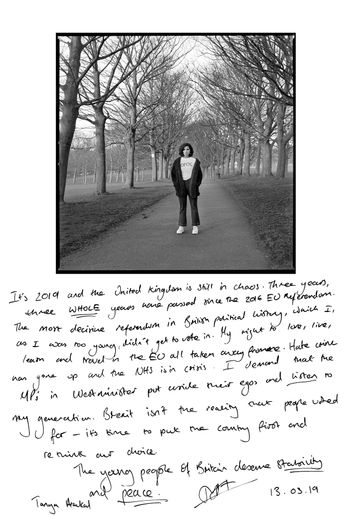 It's 2019 and the United Kingdom is still in chaos. Three years,
three WHOLE years have passed since the 2016 EU Referendum.
The most decisive referendum in British political history, which I,
as I was too young, didn't get to vote in. My right to love, live,
learn and travel in the EU all taken away from me. Hate crime
has gone up and the NHS is in crisis. I demand that the
MPs in Westminister put aside their egos and listen to
my generation. Brexit isn't the reality that people voted
for – it's time to put the country first and
rethink our choice.
The young people of Britain deserve stability
and peace.
Tanya 13.03.19